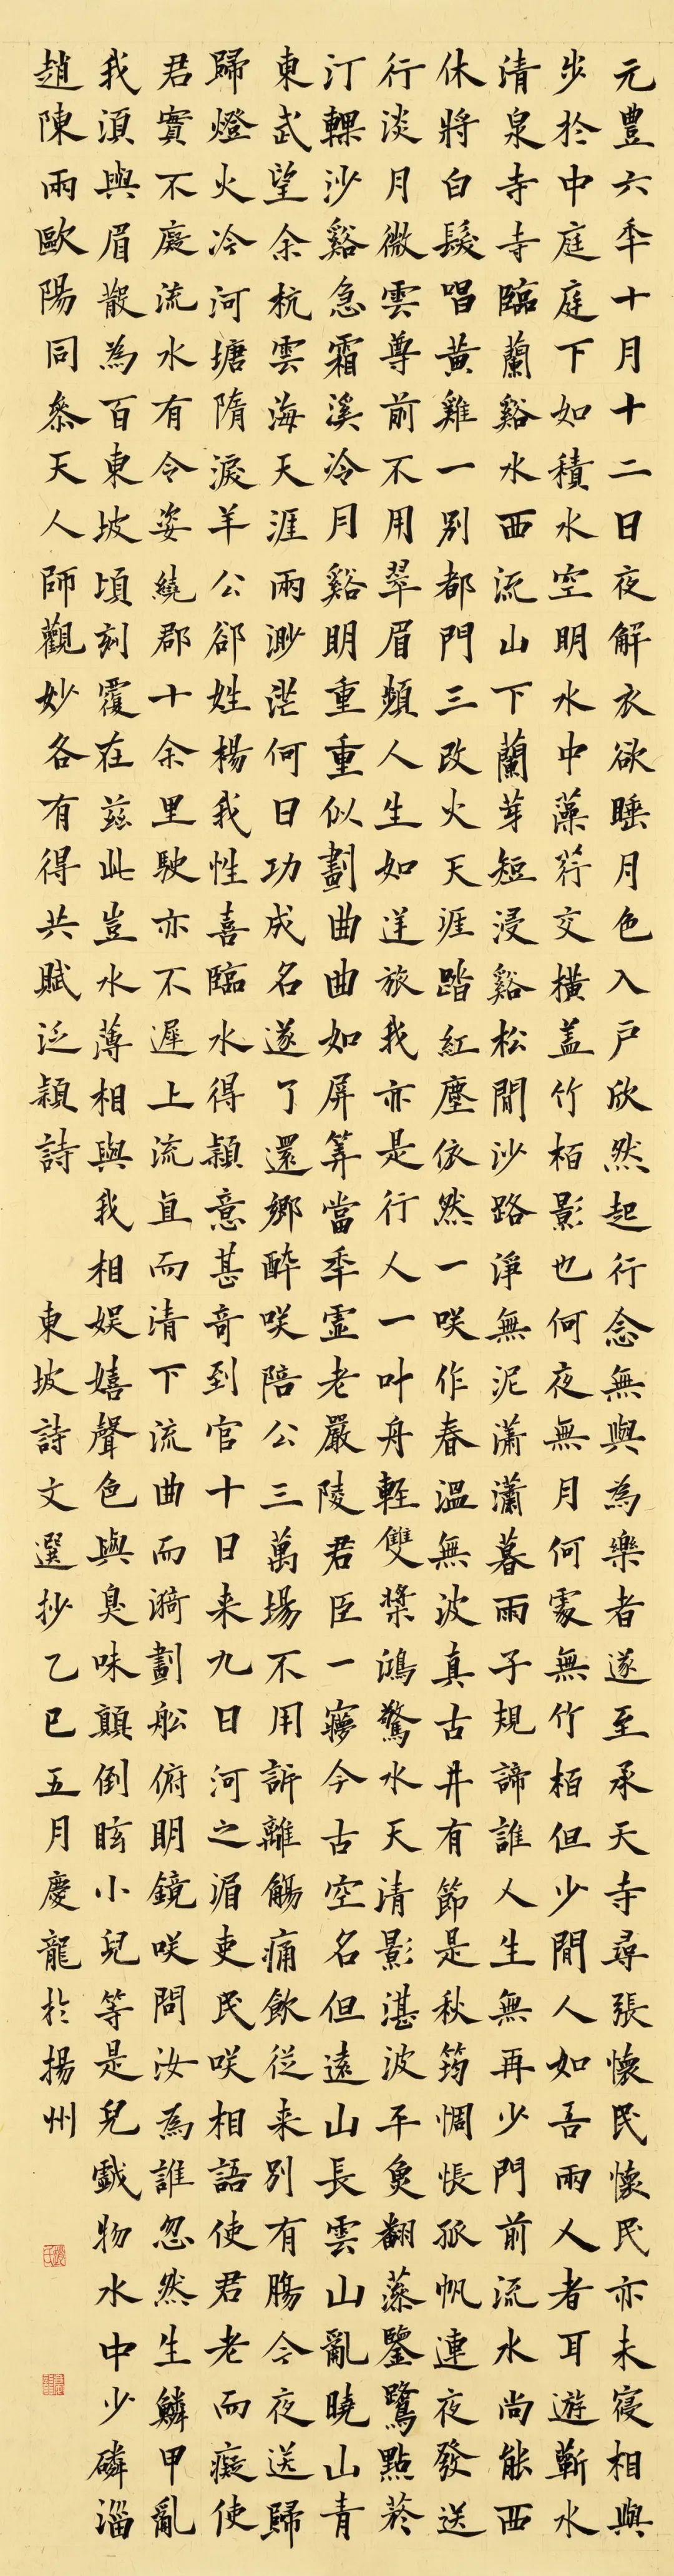 元豐六年十月十二日夜解衣欲睡月色入戶欣然起行念無與為樂者遂至承天寺尋張懷民懷民亦未寢相與
步於中庭庭下如積水空明水中藻荇交橫蓋竹栢影也何夜無月何處無竹栢但少閒人如吾兩人者耳遊蘄水
清泉寺寺臨蘭谿水西流山下蘭芽短浸谿松間沙路淨無泥瀟瀟暮雨子規諦誰人生無再少門前流水尚能西
休將白髮唱黃雞一別都門三改火天涯踏紅塵依然一咲作春溫無波真古井有節是秋筠惆悵孤帆連夜發送
行淡月微雲尊前不用翠眉頻人生如逆旅我亦是行人一叶舟輕雙槳鴻驚水天清影湛波平魚翻藻鑒鷺點菸
汀輠沙谿急霜溪冷月谿明重重似劃曲曲如屏算當年虛老嚴陵君臣一夢今古空名但遠山長雲山亂曉山青
東武望余杭雲海天涯兩渺茫何日功成名遂了還鄉醉咲陪公三萬場不用訴離觴痛飲從来別有腸今夜送歸
歸燈火冷河塘隋淚羊公郤姓楊我性喜臨水得潁意甚奇到官十日来九日河之湄吏民咲相語使君老而癡使
君實不癡流水有令姿繞郡十余里駛亦不遲上流直而清下流曲而漪劃船俯明鏡咲問汝為誰忽然生鱗甲亂
我須與眉散為百東坡頃刻覆在茲此豈水薄相與我相娛嬉聲色與臭味顛倒眩小兒等是兒戲物水中少磷淄
趙陳兩歐陽同參天人師觀妙各有得共賦泛潁詩 東坡詩文選抄乙巳五月慶龍於揚州